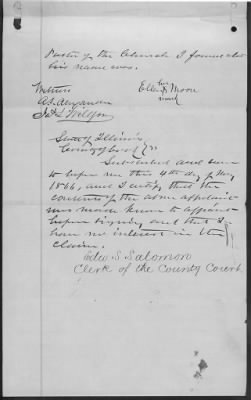 Pastor of the Church I found that
his name was.
Witness
Ellen her Moon
mark
A. S. Alexander
State of Illinois
County of Cook } ss
Subscribed and sworn
to before me this 4th day of May
1866, and I certify that the
contents of the above affidavit
was made known to affiant
before signing and that I
have no interest in this
claim.
Edw S. Salomon
Clerk of the County Court